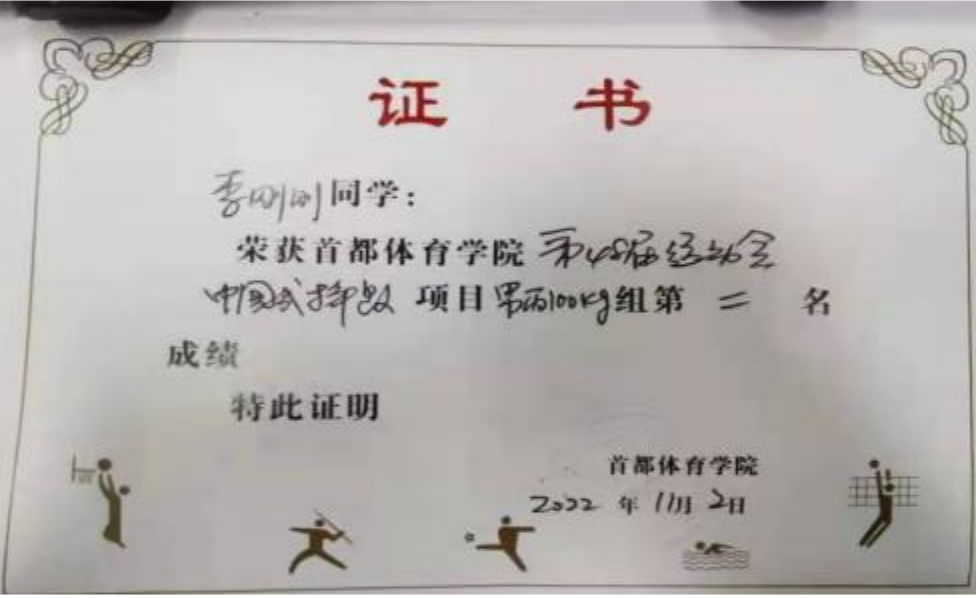 证书
李刚刚同学：
荣获首都体育学院第48届运动会
中国式摔跤项目男丙100kg组第二名
成绩
特此证明
首都体育学院
2022年11月2日